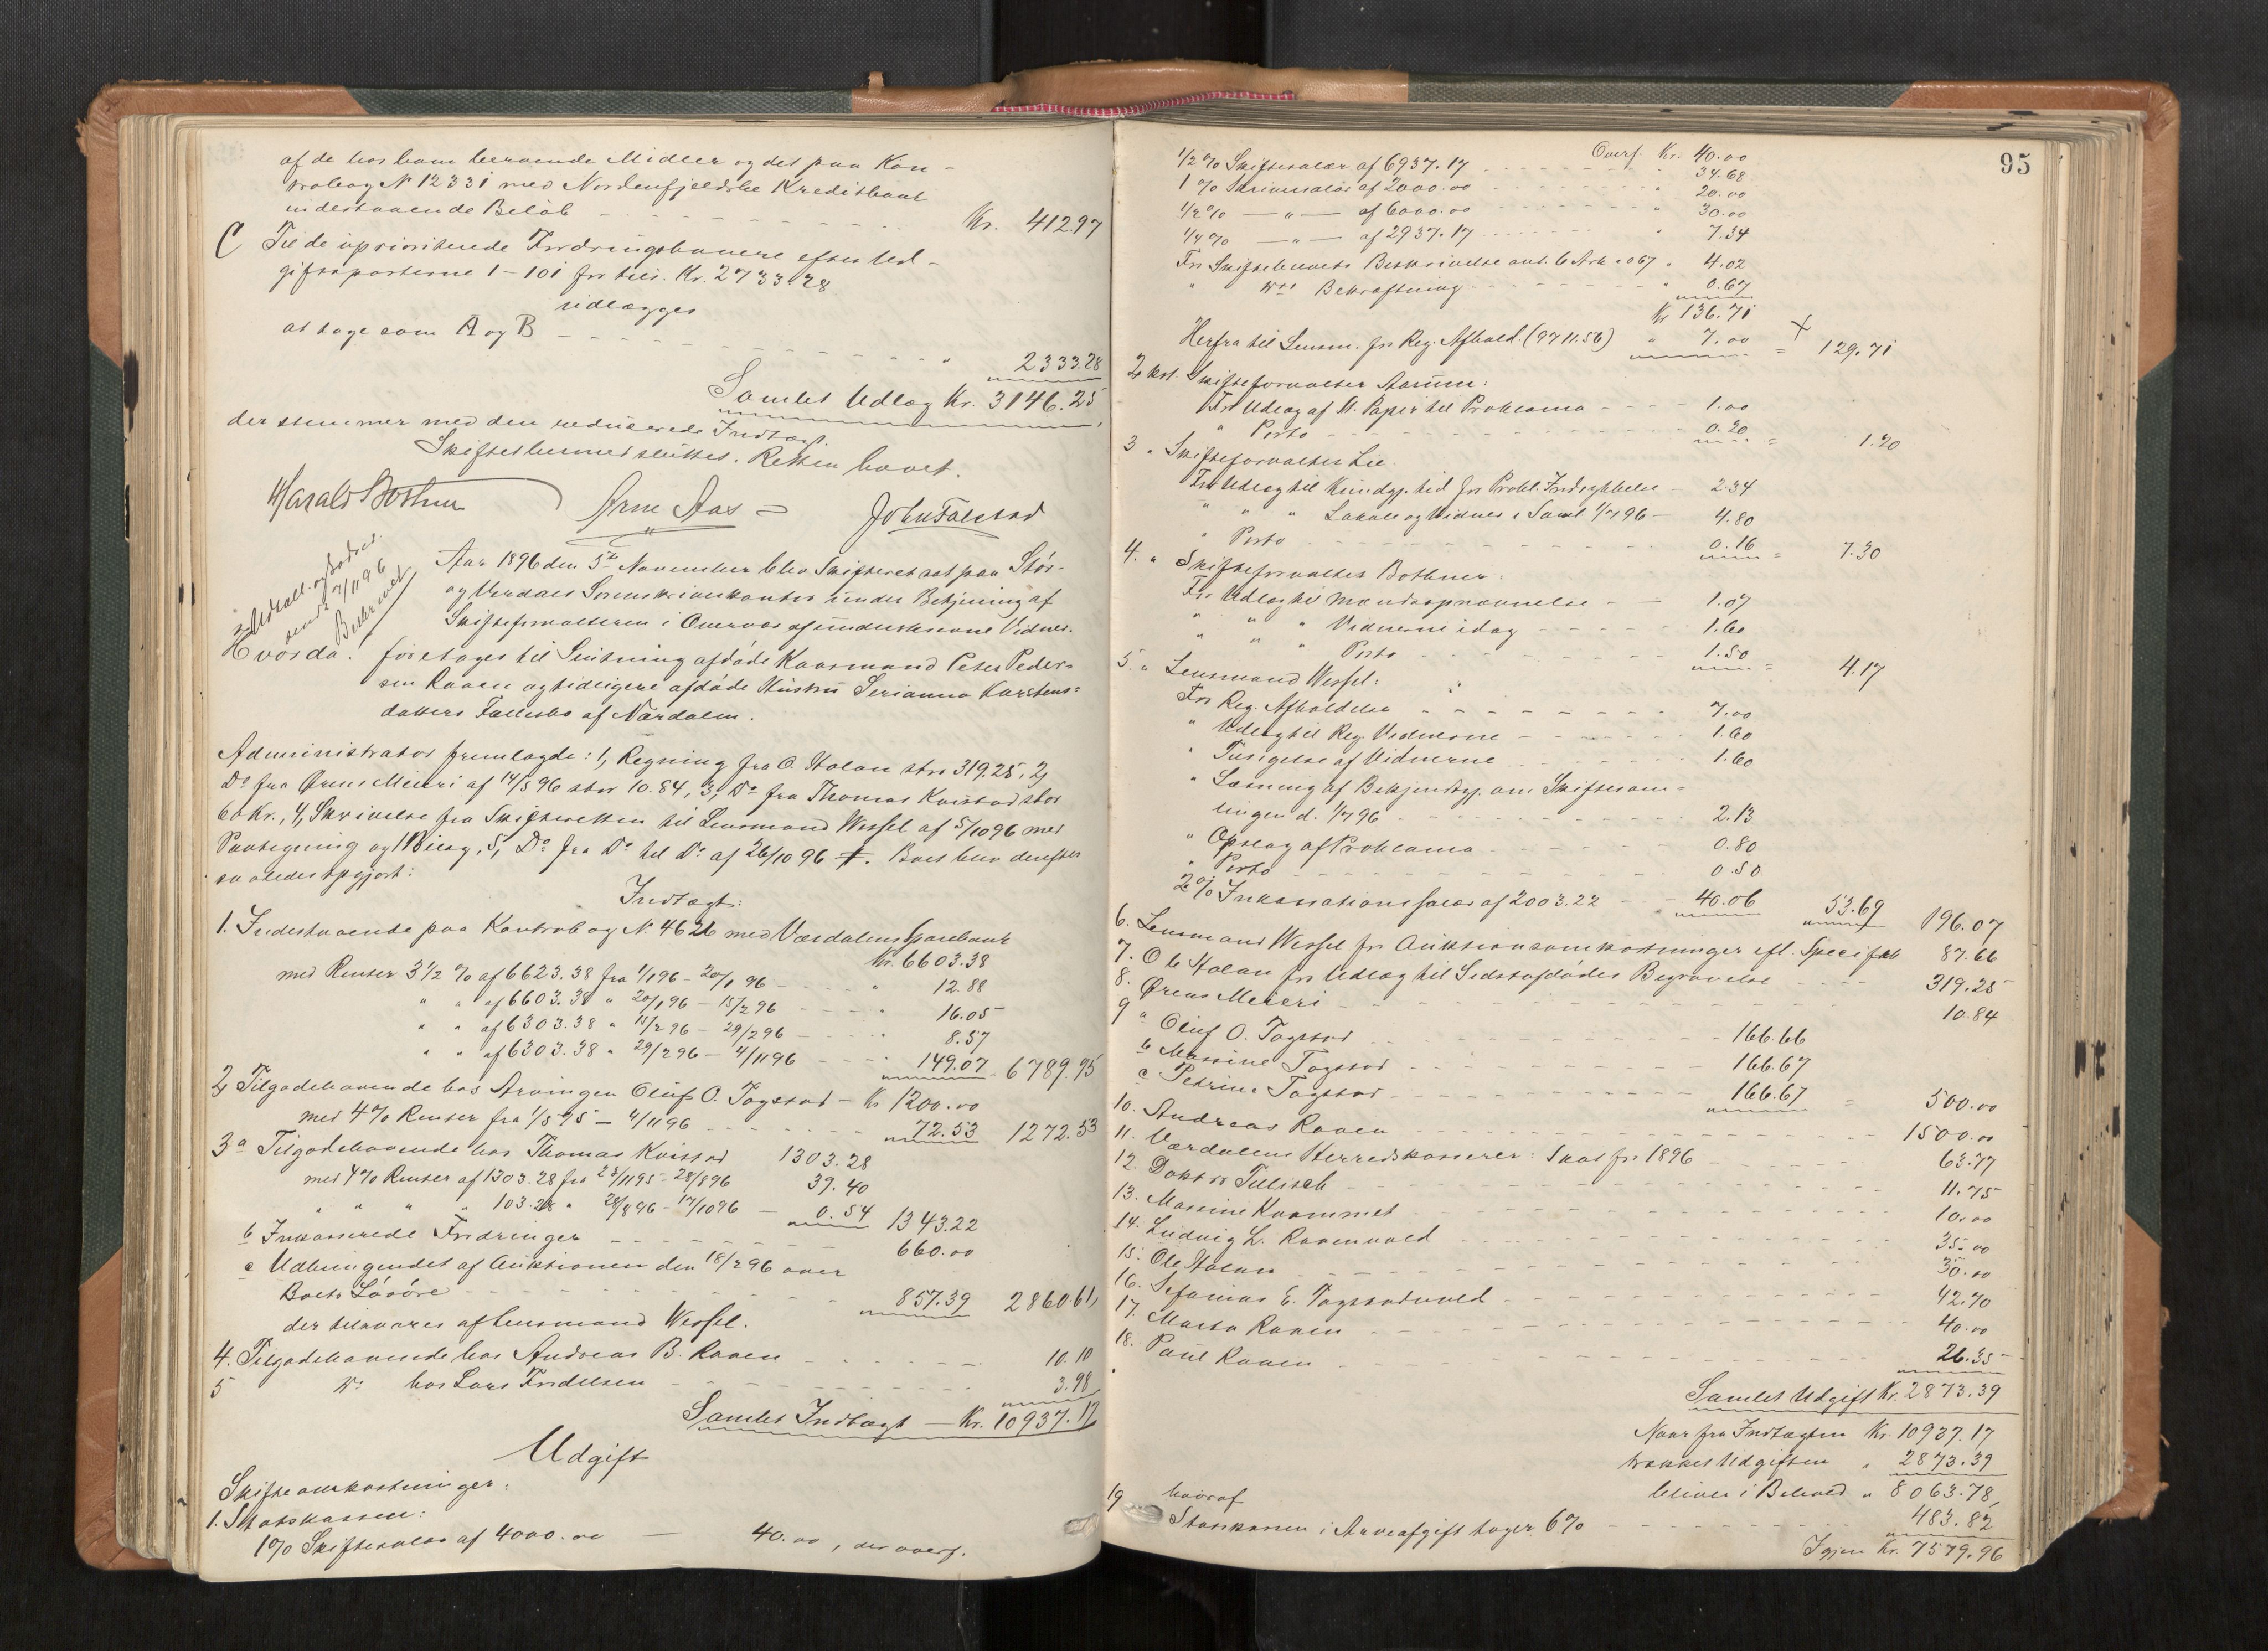 af de hos ham beroende Midler og det paa Kon-
trabog N 12331 med Nordenfjeldske Kreditbank
indestaaende Beløb - - - Kr. 412.97
C Til de uprioriterede Fordringshavere efter Ud-
giftsposterne 1-101 for tils. Kr. 2733.28
udlægges
at tage som A og B - - - " 2333.28
Samlet Udlæg Kr. 3146.25
der stemmer med den reducerede Indtægt.
Skiftet hermed sluttet. Retten hævet.
Harald Bothner Arne Aas John Falstad
Udtall. og Lodsed.
sendt 7/11 96
Bekrevet
Aar 1896 den 5te November blev Skifteret sat paa Stør-
og Verdals Sorenskriverkontor under Betjening af
Skifteforvalteren i Overvær af underskrevne Vidner.
Hvorda: foretoges til Slutning afdøde Kaarmand Peter Peder-
sen Raaen og tidligere afdøde Hustru Serianna Karstens-
datters Fællesbo af Værdalen.
Administrator fremlagde: 1, Regning fra O. Holan stor 319.25, 2,
Do fra Ørens Meieri af 14/5 96 stor 10.84, 3, Do fra Thomas Kvistad stor
60 Kr., 4, Skrivelse fra Skifteretten til Lensmand Wessel af 5/10 96 med
Paategning og 1 Bilag, 5, Do fra Do til Do af 26/10 96. Boet blev derefter
saaledes opgjort:
Indtægt:
1. Indestaaende paa Kontrabog N. 4626 med Værdalens Sparebank
Kr. 6603.38
med Renter 3 1/2 % af 6623.38 fra 1/1 96 - 20/1 96 - - " 12.88
" " af 6603.38 " 20/1 96 - 15/2 96 - - " 16.05
" " af 6303.38 " 15/2 96 - 29/2 96 - - " 8.57
" " af 6303.38 " 29/2 96 - 4/11 96 - - " 149.07 6789.95
2, Tilgodehavende hos Arvingen Oluf O. Togstad - Kr 1200.00
med 4% Renter fra 1/5 95 - 4/11 96 - - 72.53 1272.53
3 a Tilgodehavende hos Thomas Kvistad 1303.28
med 4% Renter af 1303.28 fra 23/11 95 - 28/8 96 39.40
" " " " 103.28 " 28/8 96 - 17/10 96 - 0.54 1343.22
b Inkasserede Fordringer - - - 660.00
c Udbringendet af Auktionen den 18/2 96 over
Boets Løsøre - - - 857.39 2860.61,
der tilsvares af Lensmand Wessel.
4. Tilgodehavende hos Andreas B. Raaen - - - 10.10
5 Do hos Lars Fredriksen - - - 3.98
Samlet Indtægt - Kr. 10937.17
Udgift
Skifteomkostninger:
1. Statskassen:
1% Skiftesalær af 4000.00 - 40.00, der overf.
95
Overf. Kr. 40.00
1/2 % Skiftesalær af 6937.17 - - - 34.68
1 % Skriversalær af 2000.00 - - - " 20.00
1/2 % - " - af 6000.00 - - - " 30.00
1/4 % - " - af 2937.17 - - - " 7.34
For Skiftebrevets Beskrivelse ant. 6 Ark a 067 " 4.02
" Dets Bekræftning - - - " 0.67
Kr 136.71
Herfra til Lensm. for Reg. Afhold. (9711.56) " 7.00 = 129.71
2 kst. Skifteforvalter Aarum:
For Udlæg af St. Papir til Proklama - - - 1.00
" Porto - - - 0.20 = 1.20
3 " Skifteforvalter Lie.
For Udlæg til Kundgj. tid for Prokl. Indrykkelse - 2.34
" " " Lokale og Vidner i Saml. 1/7 96 - 4.80
" Porto - - - 0.16 = 7.30
4. " Skifteforvalter Bothner:
For Udlæg til Mændsopnævnelse - - 1.07
" " " Vidnerne idag - - - 1.60
" " " Porto - - - 1.50 = 4.17
5. " Lensmand Wessel:
For Reg. Afholdelse - - - 7.00
" Udlæg til Reg. Vidnerne - - - 1.60
" Tilsigelse af Vidnerne - - - 1.60
" Læsning af Bekjendtgj. om Skiftesam-
lingen d. 1/7 96 - - - 2.13
" Opslag af Proklama - - - 0.80
" Porto - - - 0.50
2% Inkassationssalær af 2003.22 - - 40.06 53.69 196.07
6. Lensmand Wessel for Auktionsomkostninger efl. Specifik 87.66
7. Ole Holan for Udlæg til Sidstafdødes Begravelse - - - 319.25
8. Ørens Meieri - - - 10.84
9 a Oluf O. Togstad - - - 166.66
b Massine Togstad - - - 166.67
c Petrine Togstad - - - 166.67 = 500.00
10. Andreas Raaen - - - 1500.00
11. Værdalens Herredskasserer: Skat for 1896 - - - 63.77
12. Doktor Tulisch - - - 11.75
13. Massine Kvammet - - - 10.00
14. Ludvig L. Raaenvald - - - 35.00
15. Ole Holan - - - 30.00
16. Sefanias E. Togstadvald - - - 42.70
17. Marta Raaen - - - 40.00
18. Paul Raaen - - - 26.35
Samlet Udgift Kr. 2873.39
Naar fra Indtægten Kr. 10937.17
trækkes Udgiften " 2873.39
bliver i Behold " 8063.78,
19 hvoraf
Statskassen i Arveafgift tager 6% - - - 483.82
Igjen Kr. 7579.96